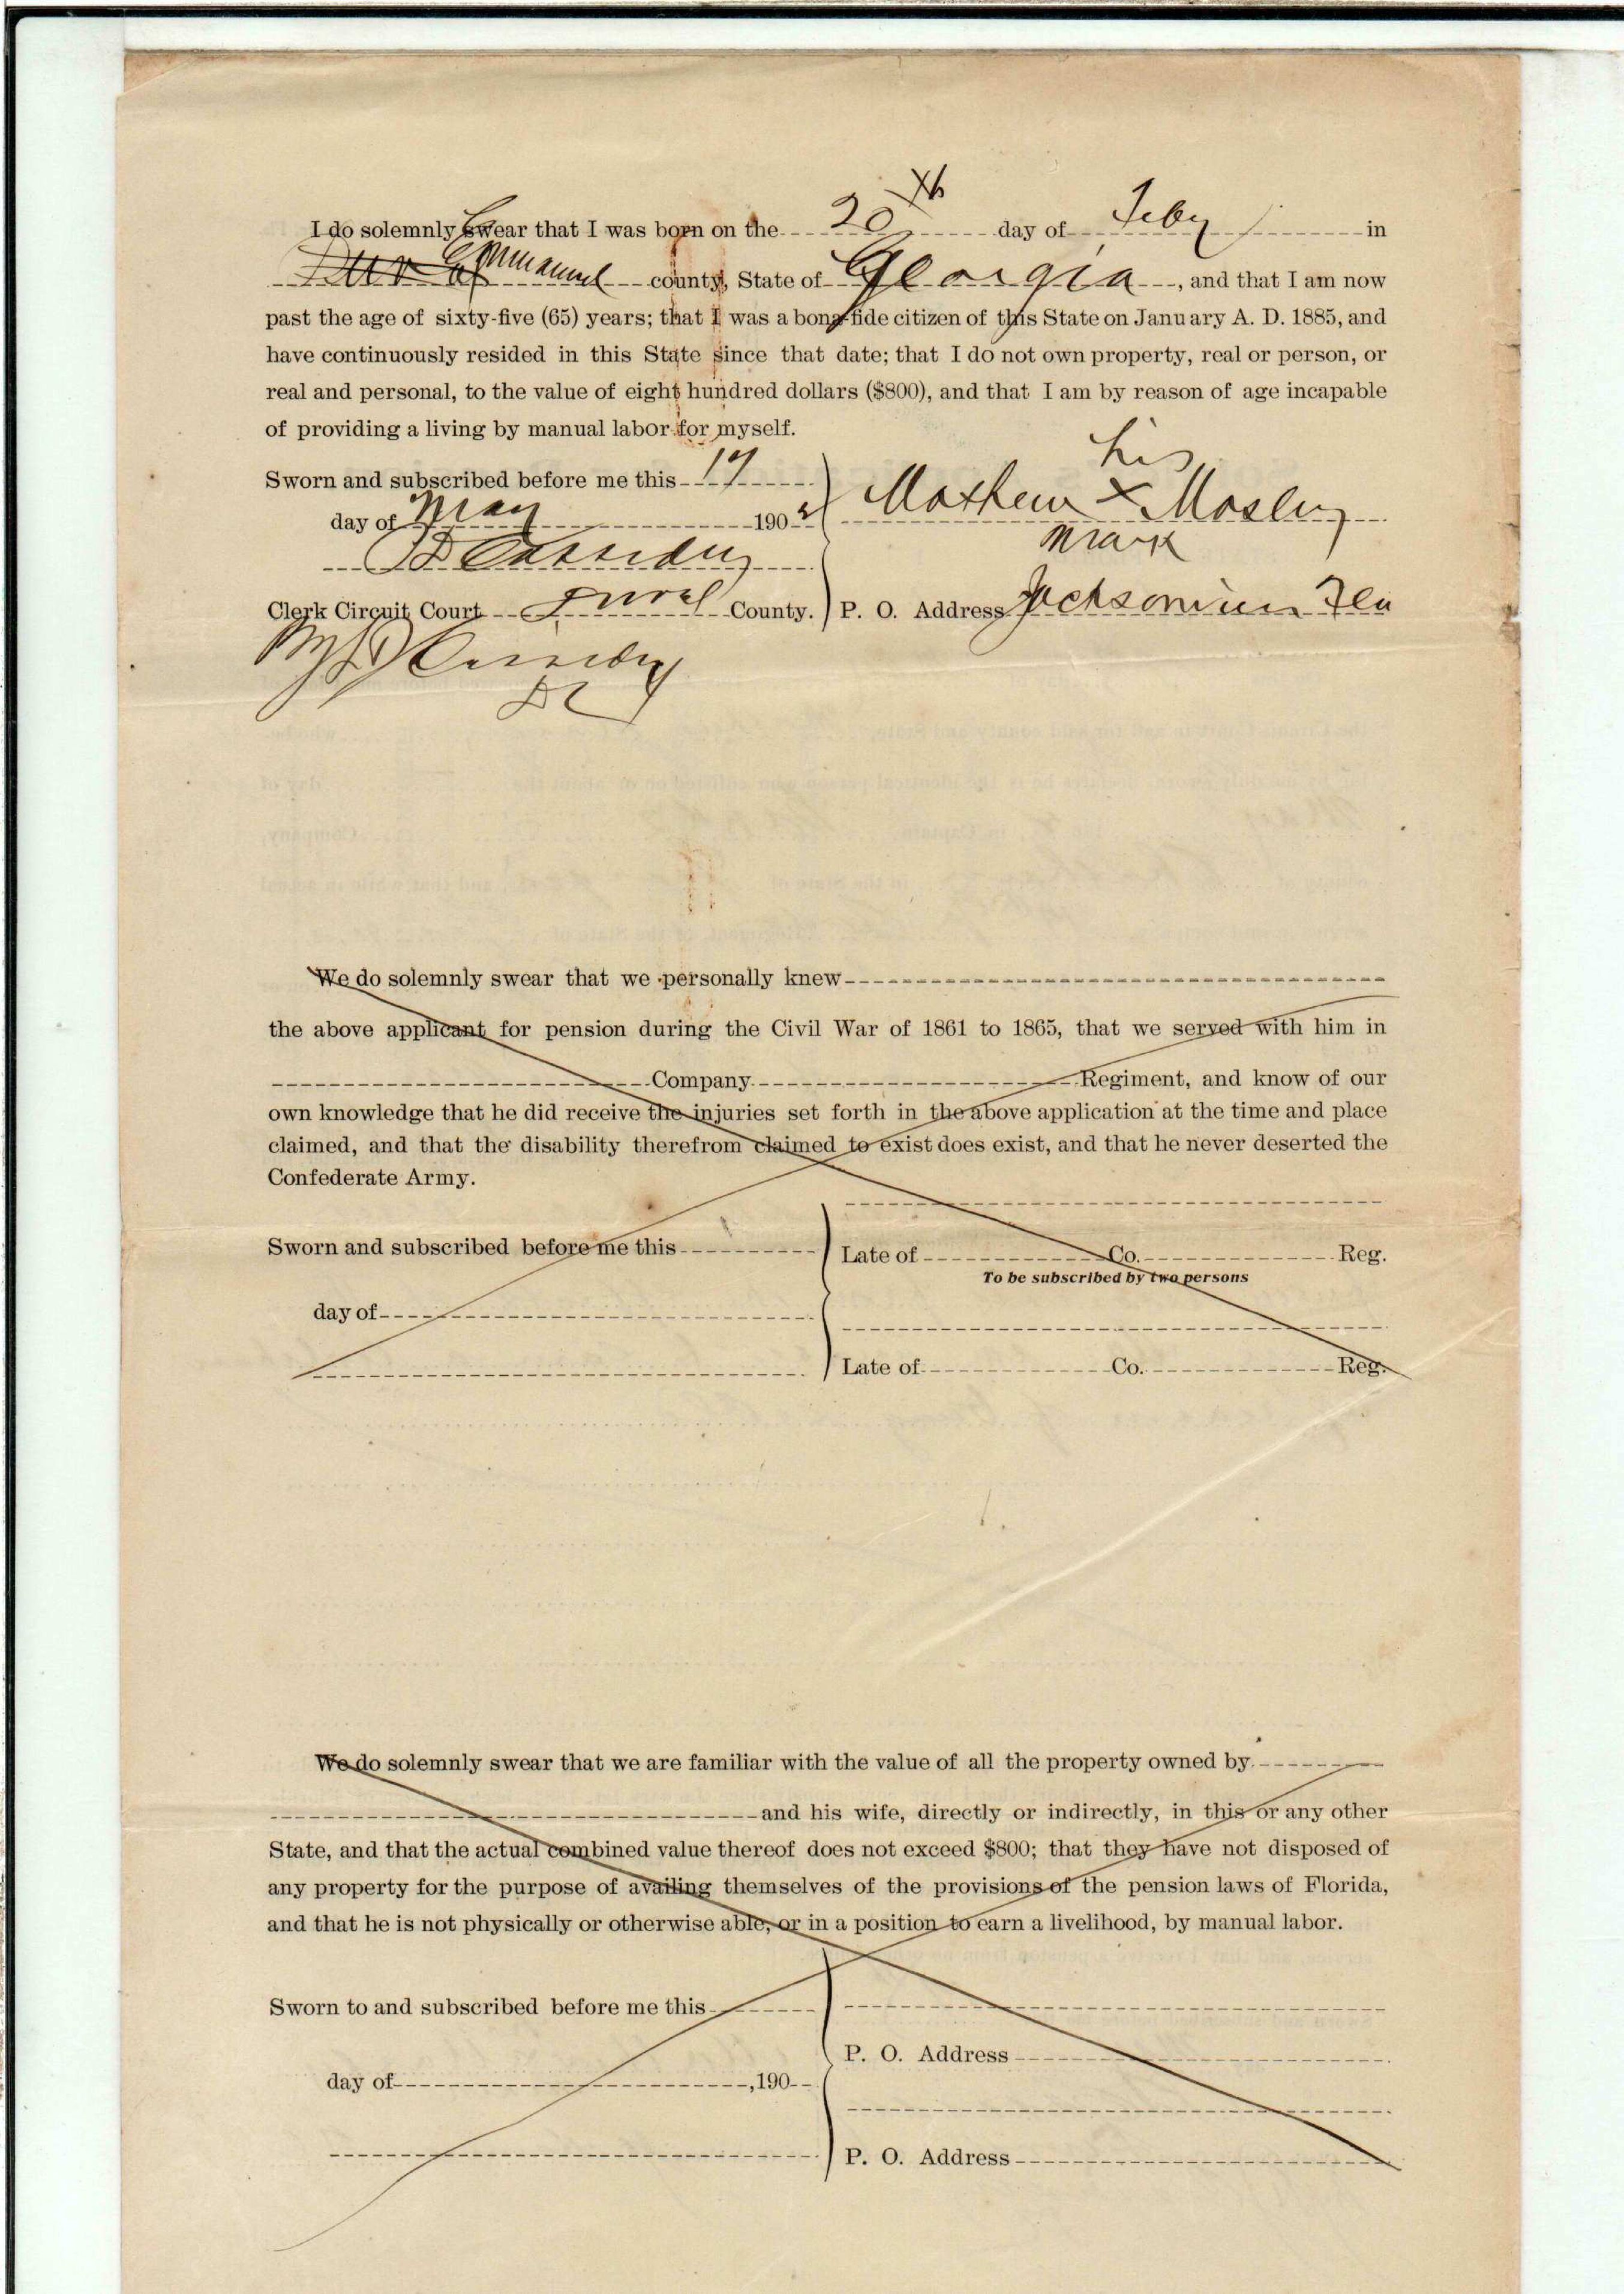 I do solemnly swear that I was born on the 20th day of Feby in
Emmanuel county, State of Georgia, and that I am now
past the age of sixty-five (65) years; that I was a bona-fide citizen of this State on January A. D. 1885, and
have continuously resided in this State since that date; that I do not own property, real or person, or
real and personal, to the value of eight hundred dollars ($800), and that I am by reason of age incapable
of providing a living by manual labor for myself.
his
Sworn and subscribed before me this 17
day of May 1902 Mathew X Mosley
mark
Cassidey
Clerk Circuit Court Duval County. P. O. Address Jacksonville Fla
Cassidey
DC
We do solemnly swear that we personally knew
the above applicant for pension during the Civil War of 1861 to 1865, that we served with him in
Company Regiment, and know of our
own knowledge that he did receive the injuries set forth in the above application at the time and place
claimed, and that the disability therefrom claimed to exist does exist, and that he never deserted the
Confederate Army.
Sworn and subscribed before me this
Late of Co. Reg.
To be subscribed by two persons
day of
Late of Co. Reg.
We do solemnly swear that we are familiar with the value of all the property owned by
and his wife, directly or indirectly, in this or any other
State, and that the actual combined value thereof does not exceed $800; that they have not disposed of
any property for the purpose of availing themselves of the provisions of the pension laws of Florida,
and that he is not physically or otherwise able, or in a position to earn a livelihood, by manual labor.
Sworn to and subscribed before me this
P. O. Address
day of ,190
P. O. Address